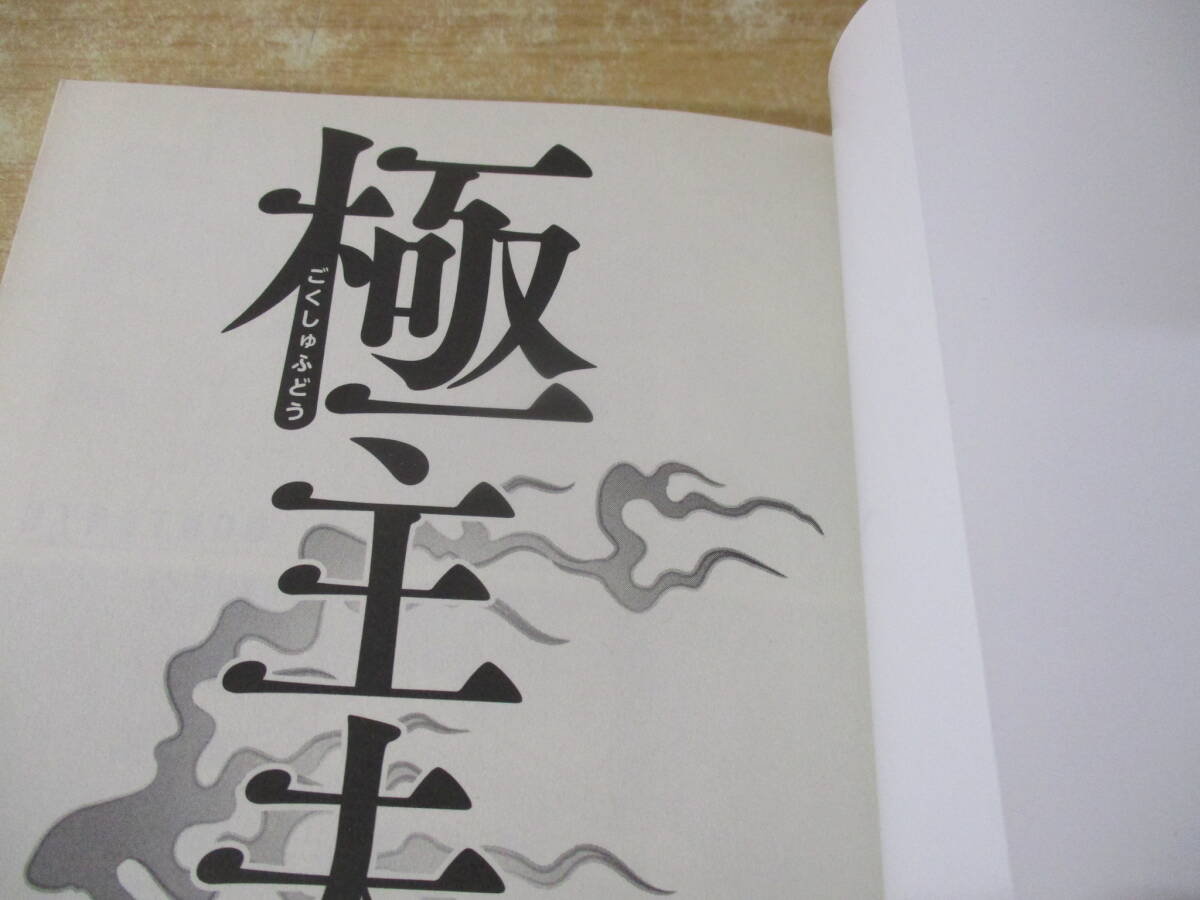 極主夫
ごくしゅふどう